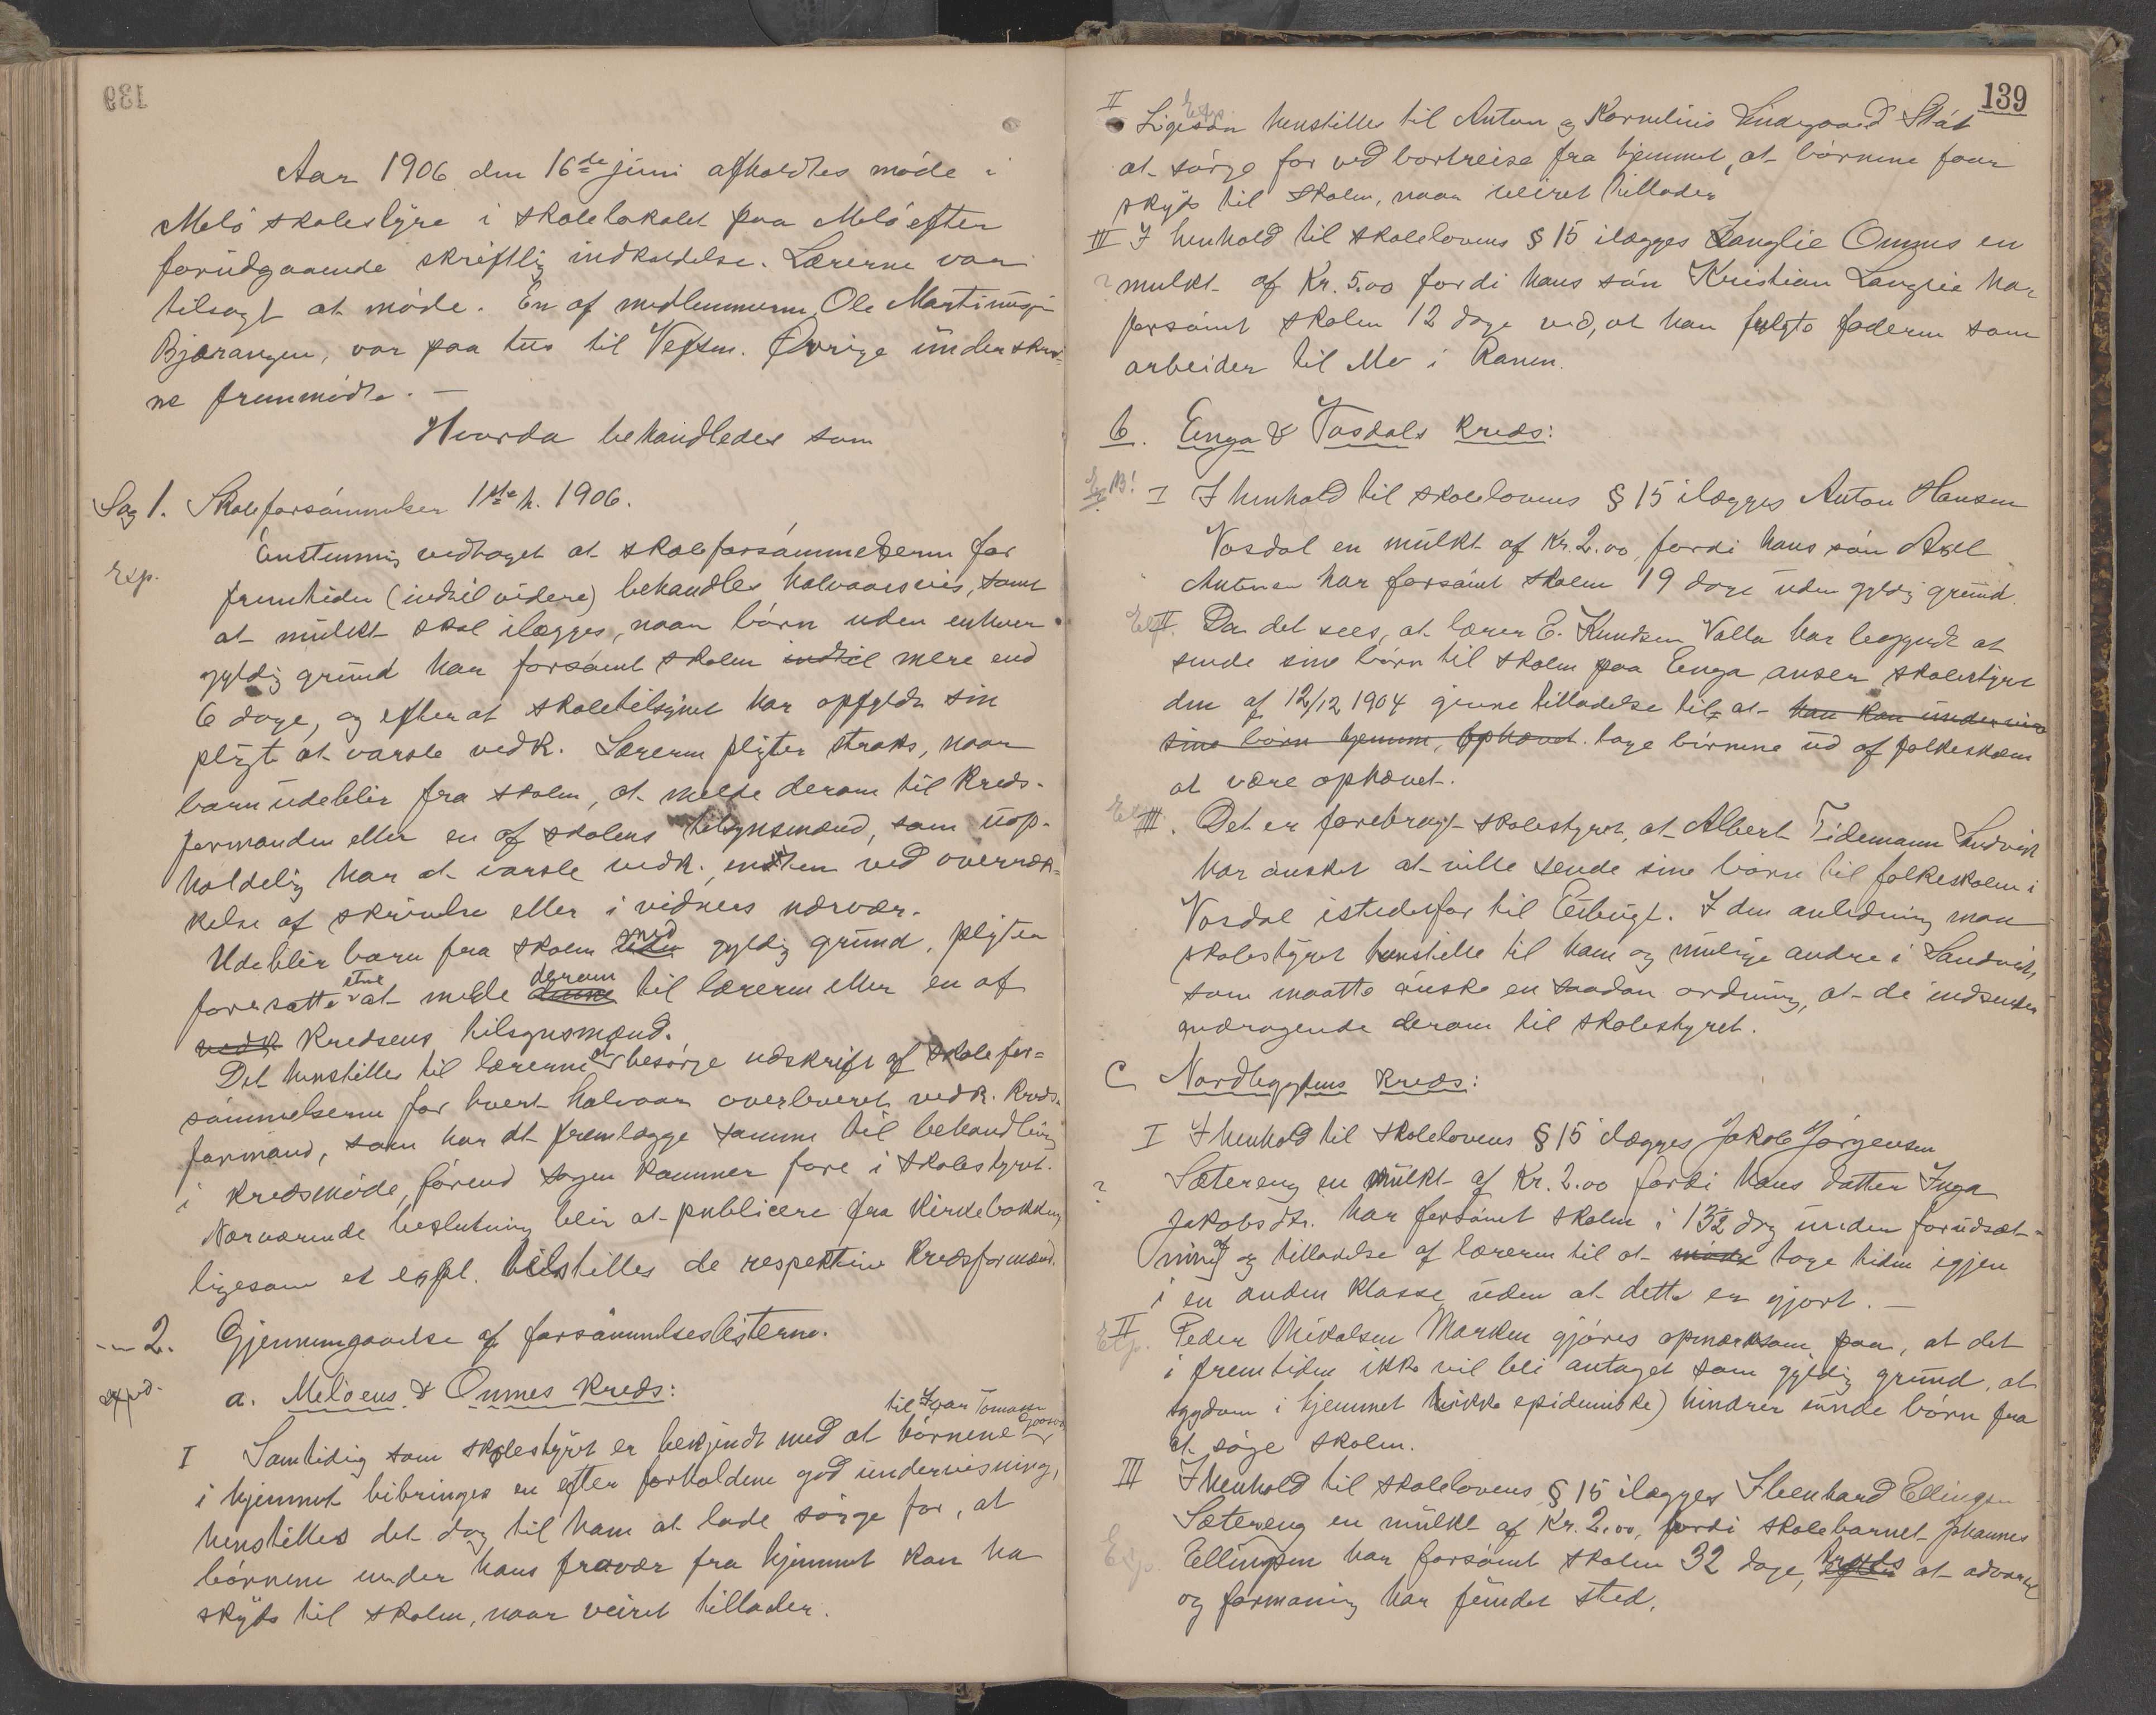 Aar 1906 den 16de juni afholdtes møde i
Melø skolestyre i skolelokalet paa Melø efter
forudgaaende skriftlig indkaldelse. Lærerne var
tilsagt at møde. En af medlemmerne, Ole Martinusen
Bjærangen, var paa ting til Vefsen. Øvrige underskrev-
ne fremmødte. —
Hvorda behandledes som
Sag 1. Skoleforsømmelser 1ste h. 1906.
Exp. Enstemmig vedtaget at skoleforsømmelserne for
fremtiden (indtil videre) behandles halvaarsvis, samt
at mulkt skal ilægges, naar børn uden enhver
gyldig grund har forsømt skolen indtil mere end
6 dage, og efter at skoletilsynet har opfyldt sin
pligt at varsle vedk. Læreren pligter straks, naar
barn udeblir fra skolen, at melde derom til kreds-
formanden eller en af skolens tilsynsmænd, som uop-
holdelig har at varsle vedk., enten ved overræk-
kelse af skrivelse eller i vidners nærvær.
Udeblir barn fra skolen uden med gyldig grund, pligter
foresatte at melde denne derom til læreren eller en af
vedk kredsens tilsynsmænd.
Det henstilles til lærerne at besørge udskrift af skolefor-
sømmelserne for hvert halvaar overleveret vedk. kreds-
formand, som har at fremlægge samme til behandling
i kredsmøde, førend sagen kommer fore i skolestyret.
Nærværende beslutning blir at publicere fra kirkebakken
ligesom et expl. tilstilles de respektive kredsformænd.
— 2. Gjennemgaaelse af forsømmelseslisterne.
exped. a. Meløens & Onnes kreds:
til Ivar Tomassen
I Samtidig som skolestyret er bekjendt med at børnene
i hjemmet bibringes en efter forholdene god undervisning,
henstilles det dog til ham at lade sørge for, at
børnene under hans fravær fra hjemmet kan ha
skyds til skolen, naar veiret tillader.
139
II Exp. Ligesaa henstilles til Anton og Kornelius Lindgaard Støt
at sørge for ved bortreise fra hjemmet, at børnene faar
skyds til skolen, naar veiret tillader
III I henhold til skolelovens § 15 ilægges Langlie Onnes en
? mulkt af Kr. 5.00 fordi hans søn Kristian Langlie har
forsømt skolen 12 dage ved, at han fulgte faderen som
arbeider til Mo i Ranen.
b. Enga & Vasdals kreds:
I I henhold til skolelovens § 15 ilægges Anton Hansen
Vosdal en mulkt af Kr. 2.00, fordi hans søn Axel
Antonsen har forsømt skolen 19 dage uden gyldig grund.
Exp II. Da det sees, at lærer E. Knudsen Valla har begyndt at
sende sine børn til skolen paa Enga anser skolestyret
den af 12/12 1904 givne tilladelse til at han kan undervise
sine børn hjemme, ophævet. tage børnene ud af folkeskolen
at være ophævet.
Exp III. Det er forebragt skolestyret, at Albert Tidemann Sandvik
har ønsket at ville sende sine børn til folkeskolen i
Vosdal istedetfor til Eisbugt. I den anledning maa
skolestyret henstille til ham og mulige andre i Sandvik,
som maatte ønske en saadan ordning, at de indsender
andragende derom til skolestyret.
C Nordbygdens kreds:
I I henhold til skolelovens § 15 ilægges Jakob Jørgensen
? Sætereng en mulkt af Kr. 2.00 fordi hans datter Inga
Jakobsdtr. har forsømt skolen i 13½ dag under forudsæt-
ning af og tilladelse af læreren til at møde tage tiden igjen
i en anden klasse uden at dette er gjort. —
II Exp. Peder Mikalsen Marken gjøres opmærksom paa, at det
i fremtiden ikke vil bli antaget som gyldig grund, at
sygdom i hjemmet (ikke epidemiske) hindrer sunde børn fra
at søge skolen.
III I henhold til skolelovens § 15 ilægges Ibenhard Ellingsen
Sætereng en mulkt af Kr. 2.00, fordi skolebarnet Johannes
Exp. Ellingsen har forsømt skolen 32 dage, trods at advarsel
og formaning har fundet sted.